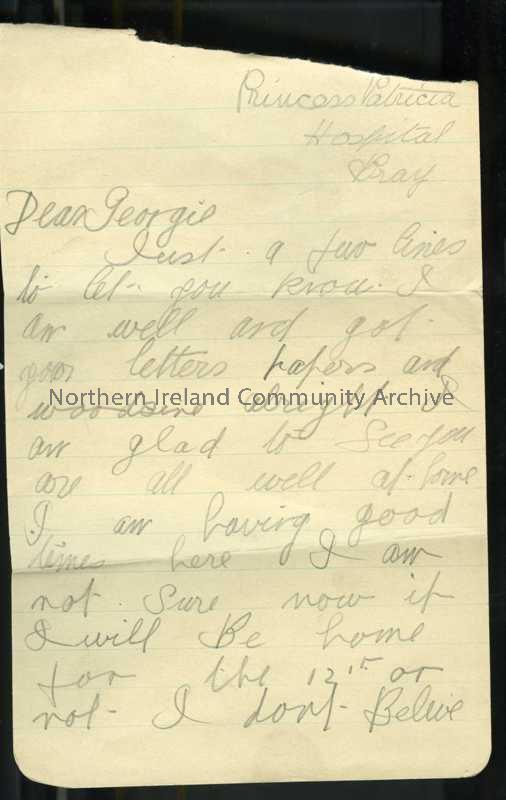 Princess Patricia
Hospital
Bray
Dear Georgie
Just a few lines
to let you know I
am well and got
your letters papers and
woodbine alright I
am glad to see you
are all well at home
I am having good
times here I am
not sure now if
I will Be home
for the 12th or
not I dont Belive
Northern Ireland Community Archive